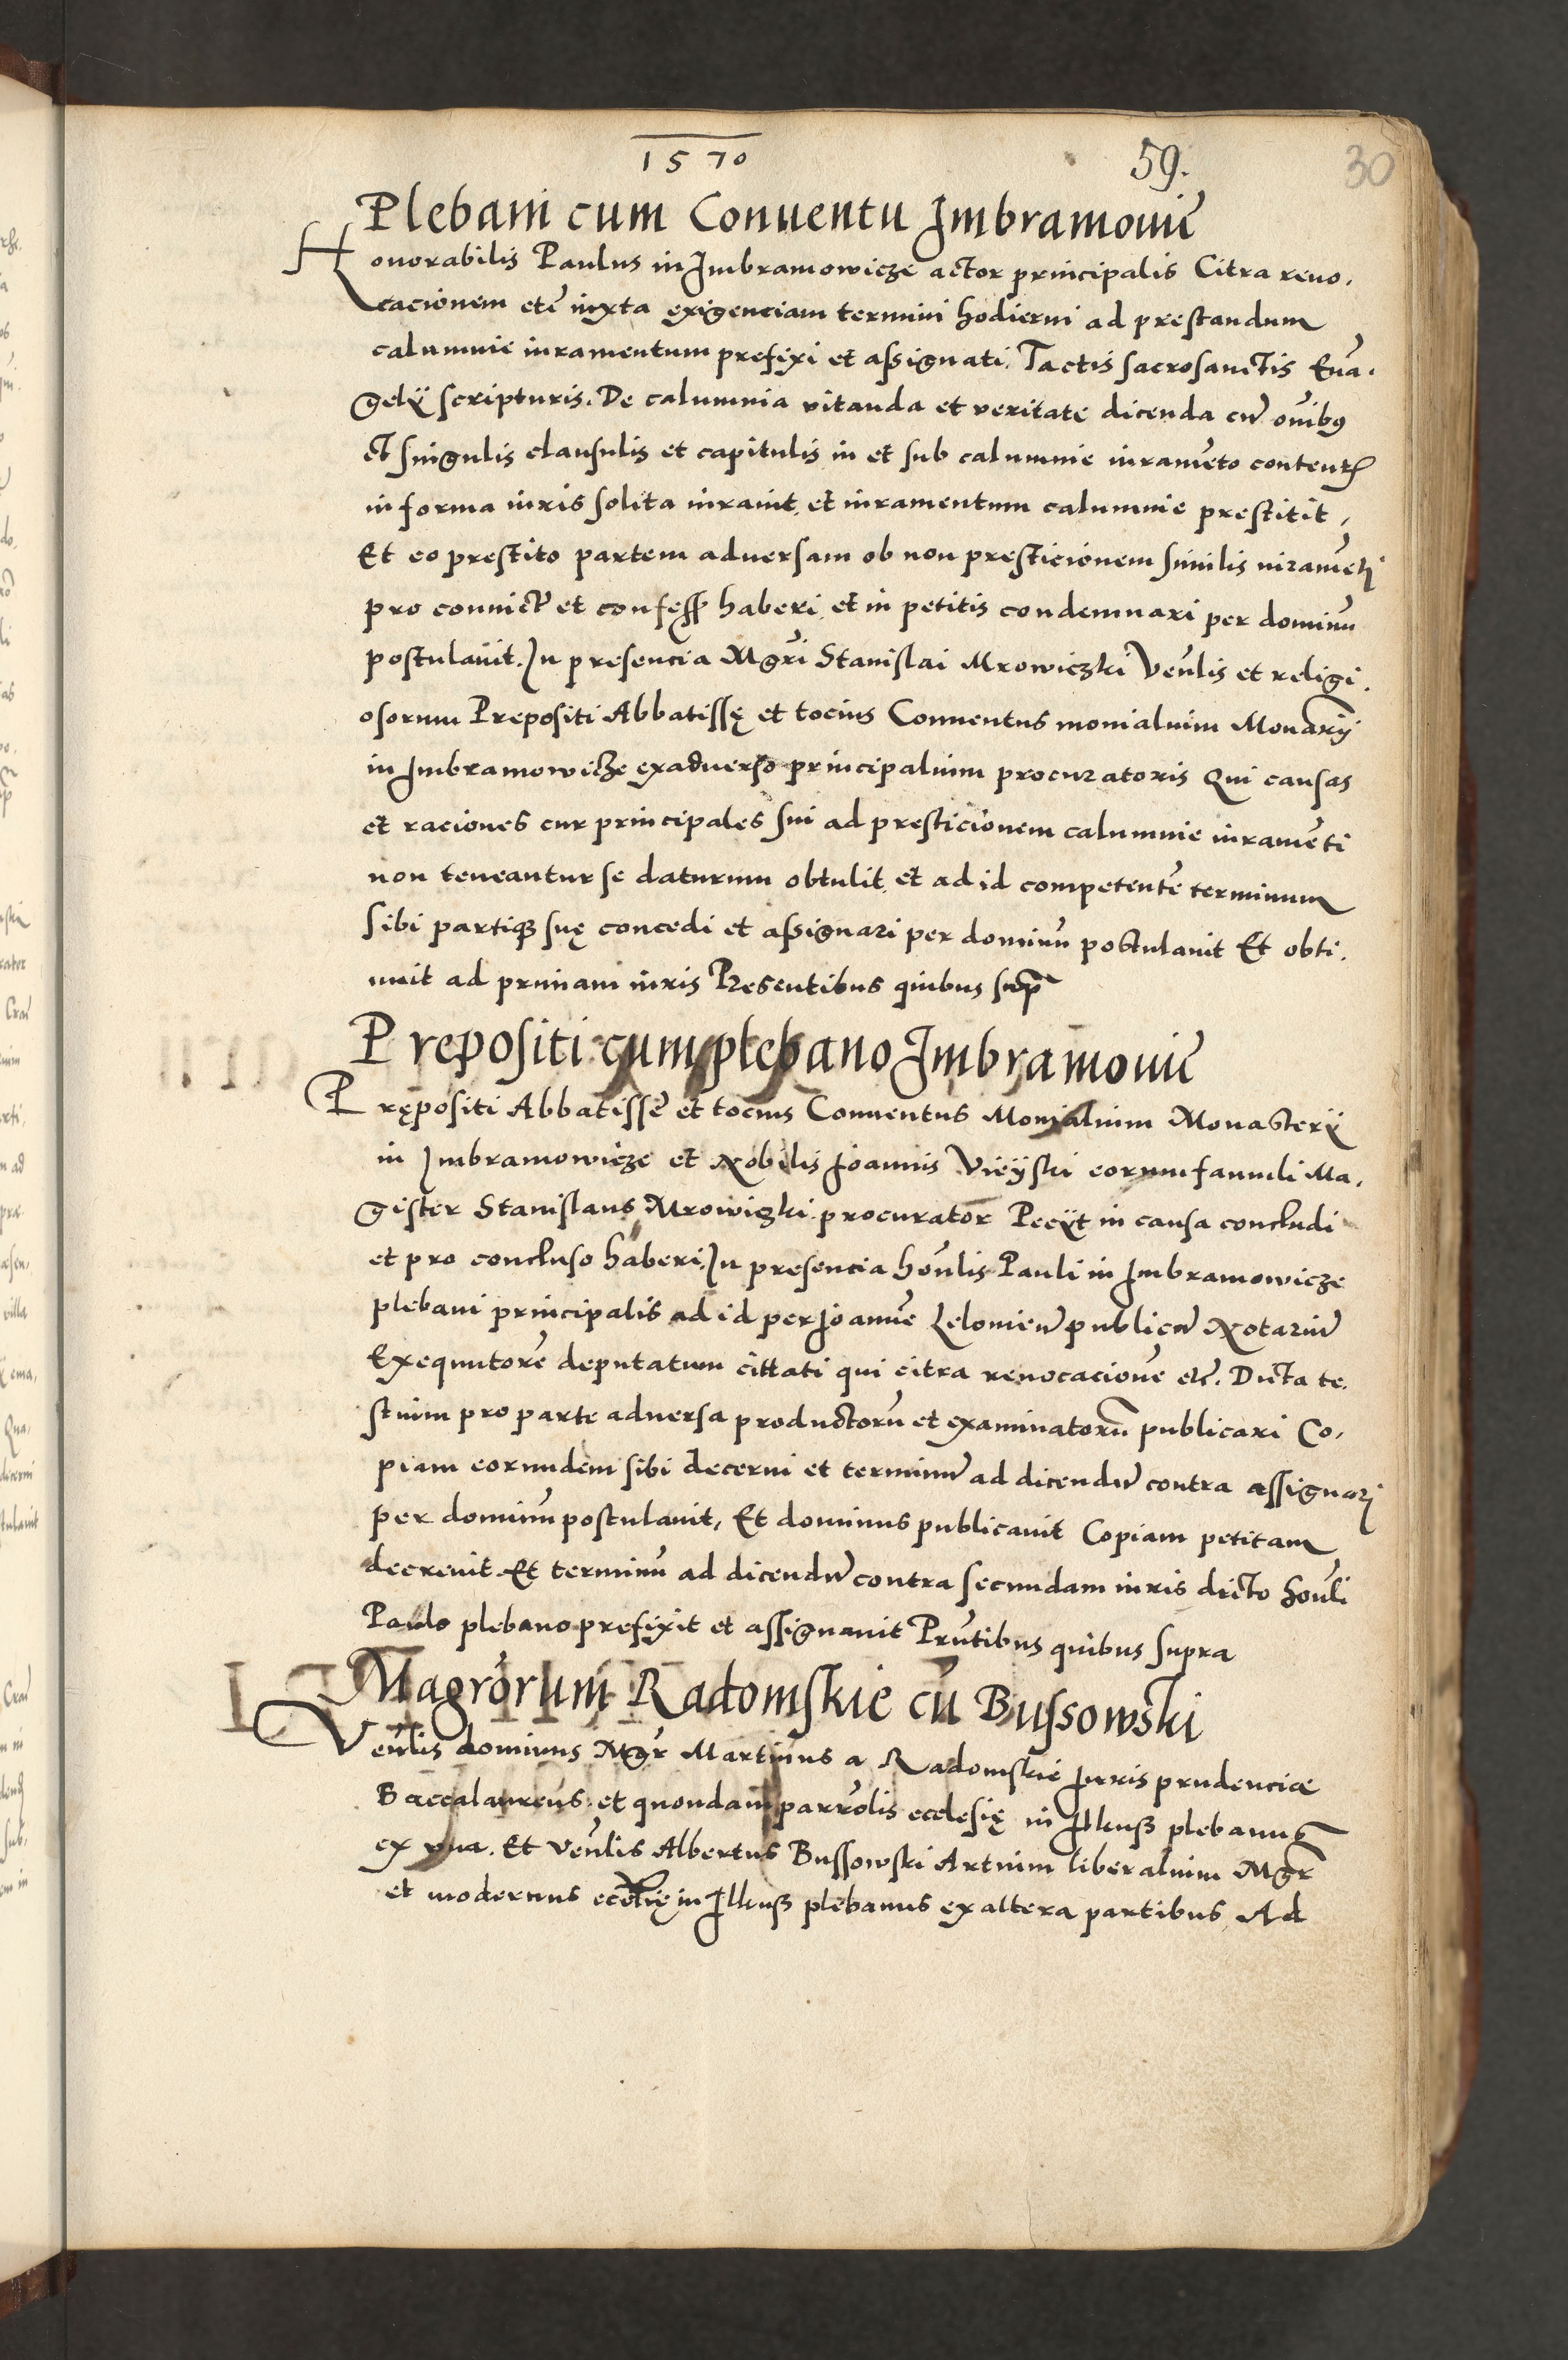 1570
59.
30
Plebani cum Conuentu Imbramouiē
Honorabilis Paulus in Imbramowicze actor principalis Citra reuo,
cacionem etc̄ iuxta exigenciam termini hodierni ad prestandum
calumnie iuramentum prefixi et assignati. Tactis sacrosanctis Euā,
gelÿ scripturis. De calumnia vitanda et veritate dicenda cū oīnibꝰ
et singulis clausulis et capitulis in et sub calumnie iuramēto content̄
in forma iuris solita iurauit et iuramentum calumnie prestitit,
Et eo prestito partem aduersam ob non presticionem similis iuramēti
pro conuict̄ et confess̄ haberi et in petitis condemnari per dominū
postulauit. In presencia Mḡri Stanislai Mrowiczki Veńlis et religi,
osorum Prepositi Abbatissę et tocius Conuentus monialium Monar̄ij
in Imbramowicze exaduerso principalium procuratoris Qui causas
et raciones cur principales sui ad presticionem calumnie iuramēti
non teneantur se daturum obtulit et ad id competentē terminum
sibi partiqꝫ suę concedi et assignari per dominū postulauit Et obti,
nuit ad primam iuris Presentibus quibus sup̄
Prepositi cum plebano Imbramouiē
Pręposití Abbatissē et tocius Conuentus Monialium Monasterÿ
in Imbramowicze et Nobilis Joannis Vieÿski eorum famuli Ma,
gister Stanislaus Mrowiczki procurator Peciÿt in causa concludi
et pro concluso haberi. In presencia hońlis Pauli in Imbramowicze
plebani principalis ad id per Joannē Leloniem̄ publicū Notariū
Exequutorē deputatum cittati qui citra reuocacionē etc̄. Dicta te,
stium pro parte aduersa productorū et examinatorū publicari Co,
piam eorundem sibi decerni et terminū ad dicendū contra assignari
per dominū postulauit, Et dominus publicauit Copiam petitam
decreuit Et terminū ad dicendū contra secundam iuris dicto hońli
Paulo plebano prefixit et assignauit Prn̄tibus quibus supra
Magrōrum Radomskie cū Bussowski
Veńlis dominus Mḡr Martinus a Radomskie Juris prudencię
Baccalaureus et quondam parrōlis ecclesię in Ilkusꝫ plebanus
ex vna. Et veńlis Albertus Bussowski Artium liberalium Mḡr
et modernus eccl̄ię in Ilkusꝫ plebanus ex altera partibus Ad